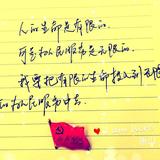 人的生命是有限的.
可是为人民服务是无限的.
我要把有限的生命投入到无限
的为人民服务中去.